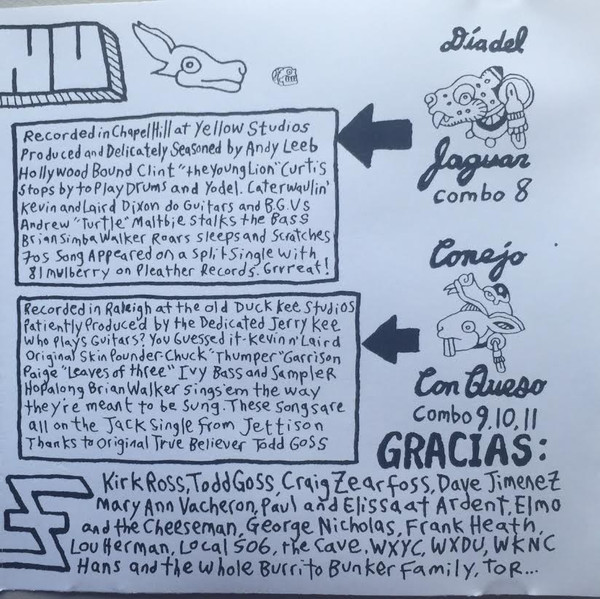 NU
Díadel
Jaguar
combo 8
Recorded in Chapel Hill at Yellow Studios
Produced and Delicately Seasoned by Andy Leeb
Hollywood Bound Clint "the Young Lion" Curtis
Stops by to Play Drums and Yodel. Caterwaulin'
Kevin and Laird Dixon do Guitars and B.G.Vs
Andrew "Turtle" Maltbie Stalks the Bass
Brian Simba Walker Roars sleeps and Scratches
70s Song Appeared on a Split Single with
81 Mulberry on Pleather Records. Grrreat!
Conejo
Con Queso
Combo 9,10,11
Recorded in Raleigh at the old Duck Kee Studios
Patiently Produce'd by the Dedicated Jerry Kee
Who Plays Guitars? You Guessed it-kevin n' Laird
Original Skin Pounder-Chuck "Thumper" Garrison
Paige "Leaves of three" Ivy Bass and Sampler
Hopalong Brian Walker Sings'em the way
they're meant to be Sung. These Songs are
all on the Jack Single From Jettison
Thanks to Original True Believer Todd Goss
GRACIAS:
Kirk Ross, Todd Goss, Craig Zearfoss, Dave Jimenez
Mary Ann Vacheron, Paul and Elissa at Ardent, Elmo
and the Cheeseman, George Nicholas, Frank Heath,
Lou Herman, Local 506, the Cave, WXYC, WXDU, WKNC
Hans and the whole Burrito Bunker Family, ToR...